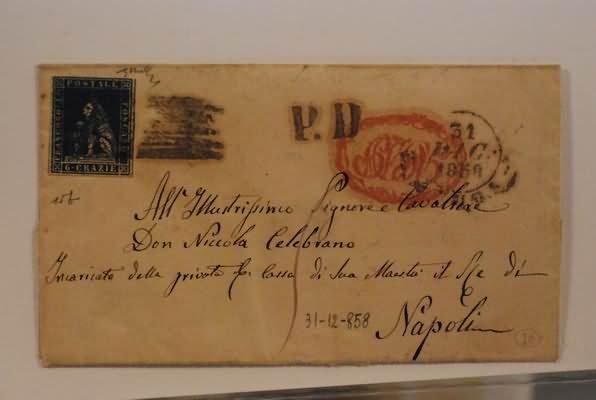 POSTALE
6·CRAZIE
P. D
31
MAG
All' Illustrissimo Signore e Cavaliere
Don Niccola Celebrano
Incaricato della privata Cassa di Sua Maestà il Re di
Napoli
31-12-858